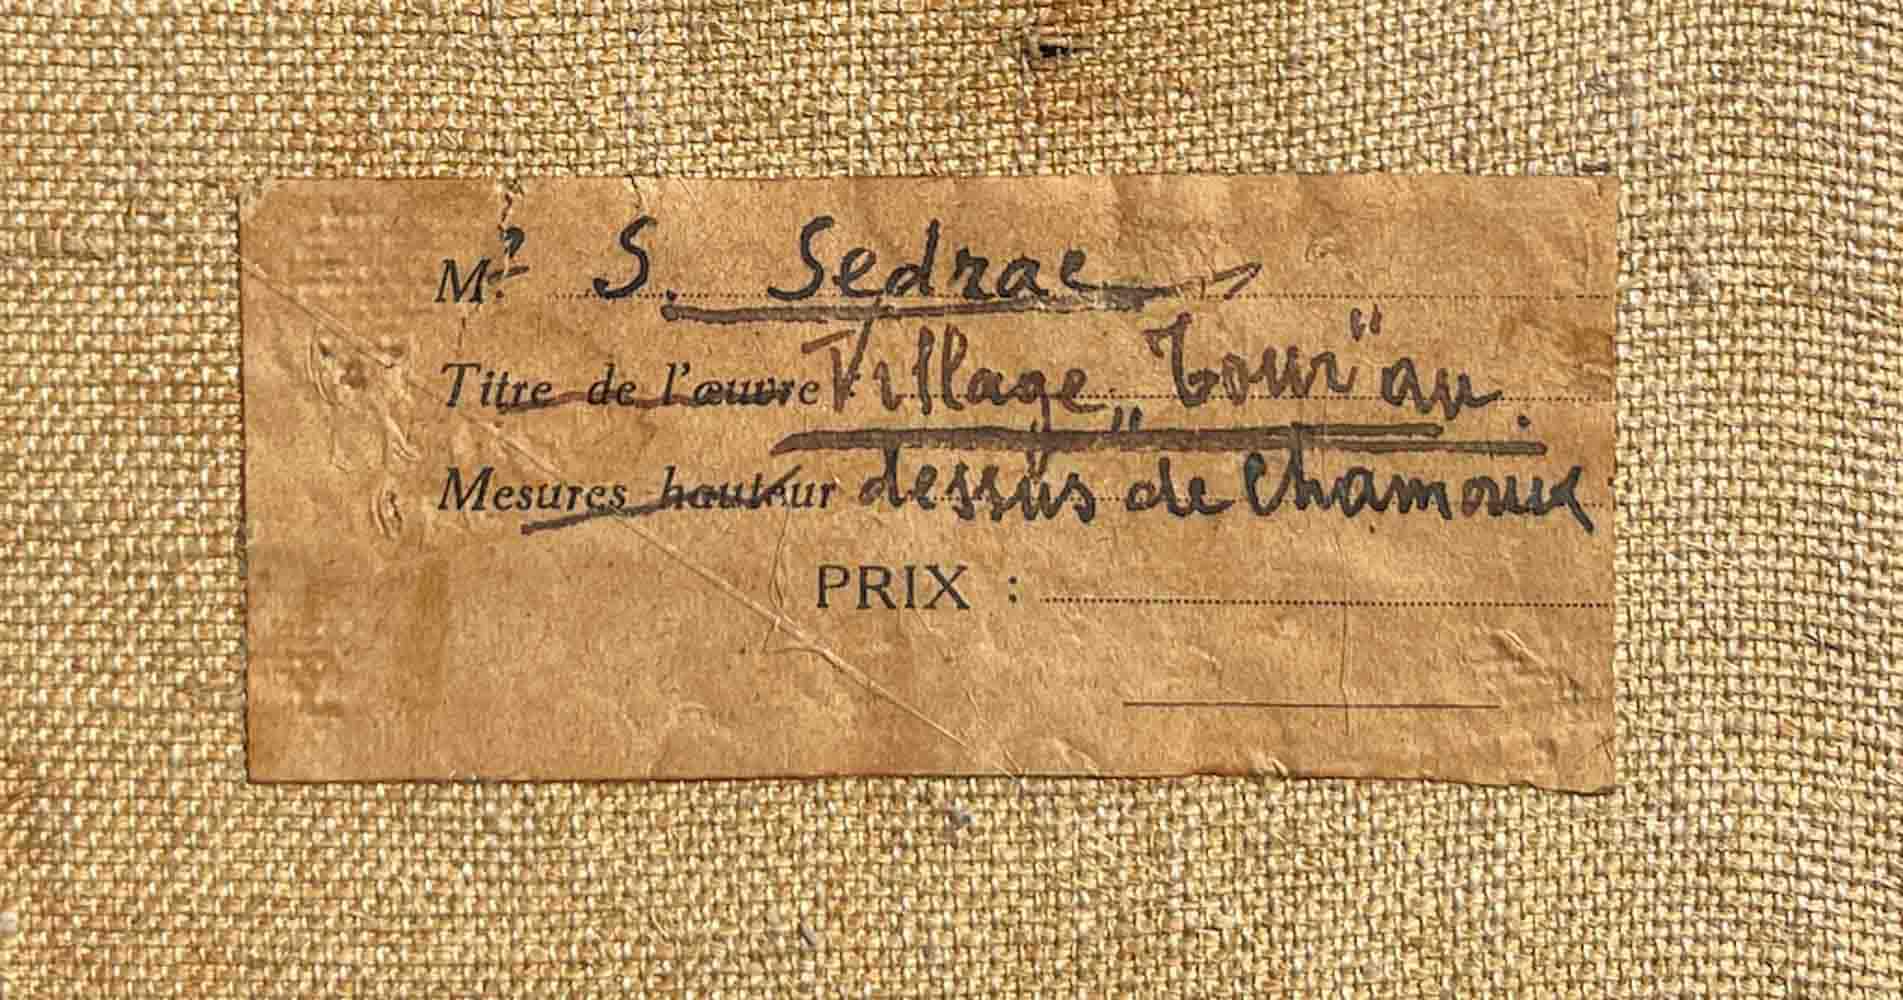 Mr S. Sedrac
Titre de l'œuvre Village „Tour“ au
Mesures hauteur dessus de Chamoux
PRIX :